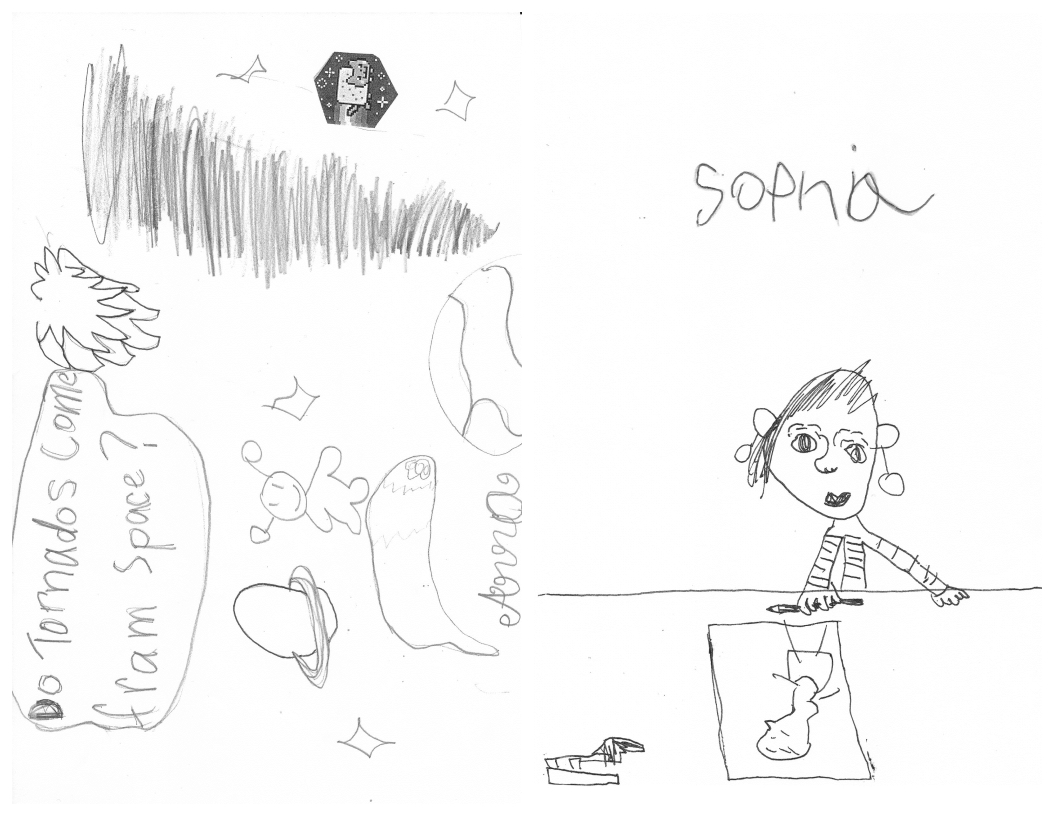 Do Tornados come
fram Space?
Anna
sophia